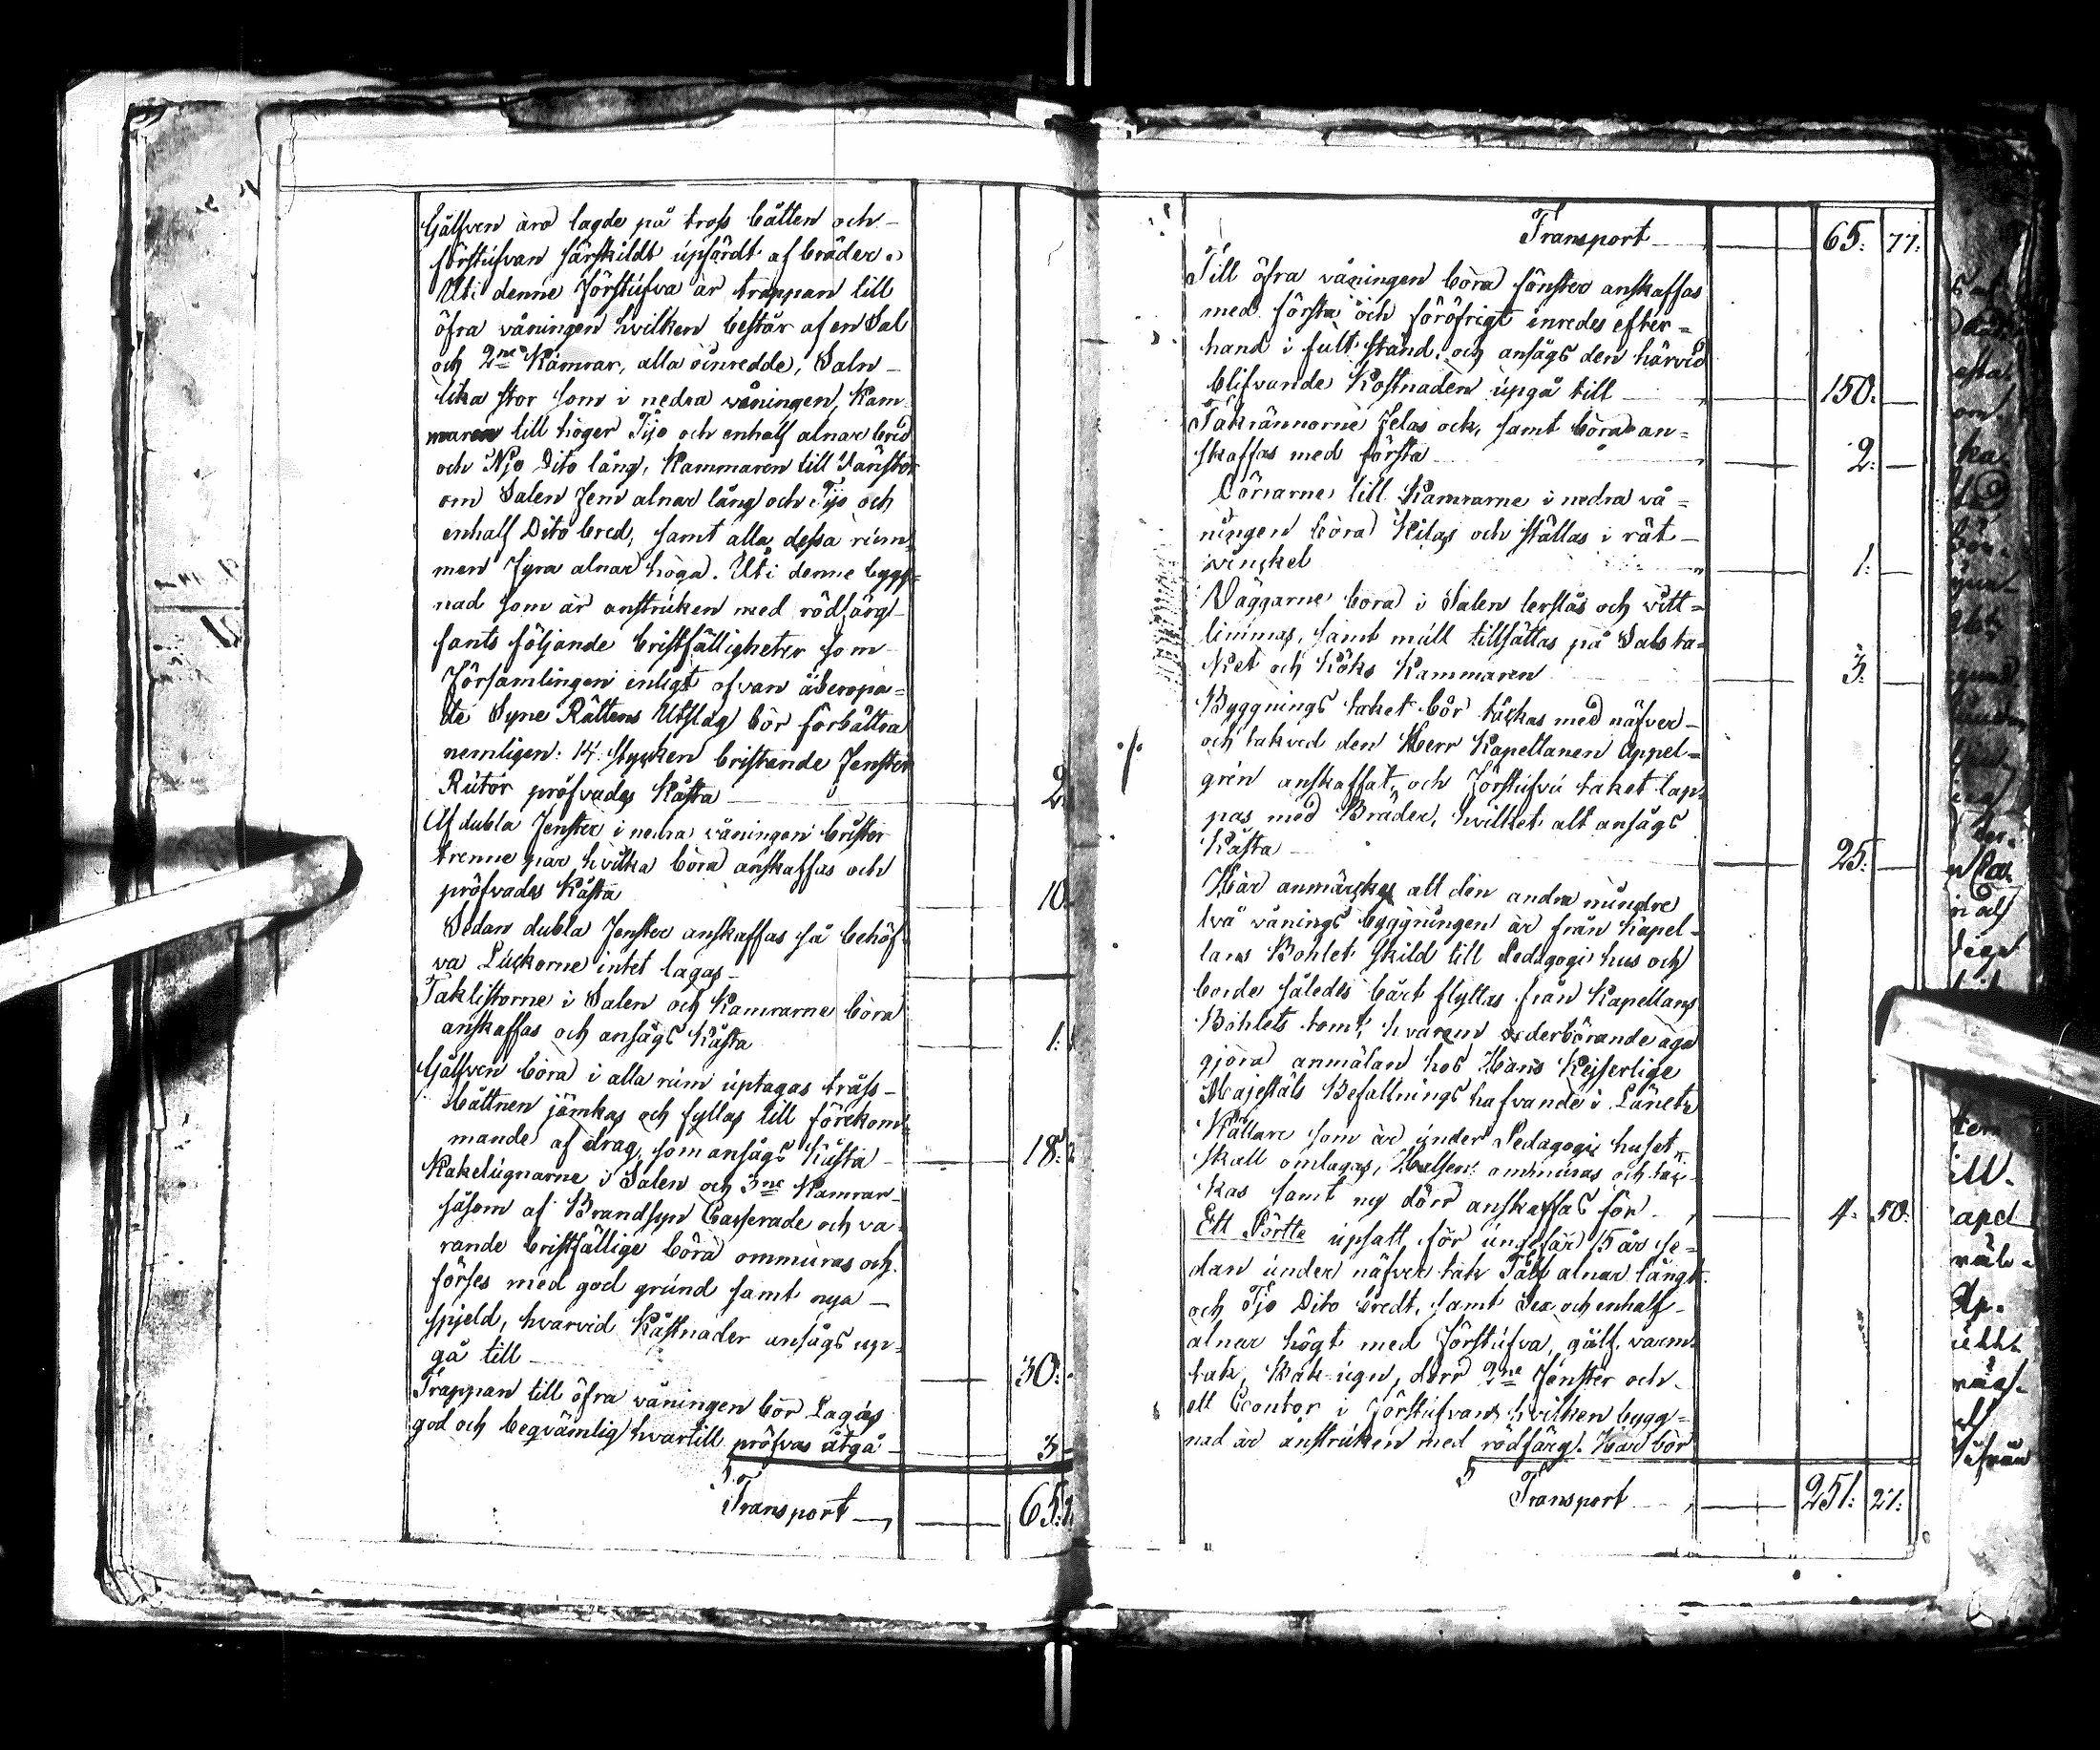 Gålfven äro lagde på tross båtten och
förstufvan särskildt upfördt af bräder.
Uti denne Förstufva är trappan till
öfra våningen hvilken består af en Sal
och 2ne Kamrar, alla oinredde, Saln
lika stor som i nedra våningen, Kam
maren till höger Tijo och enhalf alnar bred
och Nijo Dito lång, Kammaren till Vänster
om Salen Fem alnar lång och Tijo och
enhalf Dito bred, samt alla dessa rum
men Fyra alnar höga. Uti denne bygg=
nad som är anstruken med rödfärg
fants följande bristfälligheter som
Församlingen enligt ofvan åberopa=
de Syne Rättens Utslag bör förbättra
nemligen: 14. stycken bristande Fenster
Rutor pröfvades kåsta 2.
Af dubla Fenster i nedra våningen brister
trenne par hvilka böra anskaffas och
pröfvades kåsta 10.
Sedan dubla Fenster anskaffas så behöf
va Luckorne intet lagas
Taklisterne i Salen och Kamrarne böra
anskaffas och ansågs kåsta 1:
Gålfven böra i alla rum uptagas tråss
båttnen jämkas och fyllas till förekom
mande af drag, som ansågs kåsta 18:
Kakelugnarne i Salen och 3ne Kamrar
såsom af Brandsyn Casserade och va
rande bristfällige böra ommuras och
förses med god grund samt nya
spjeld, hvarvid kåstnader ansågs up=
gå till 30:
Trappan till öfra våningen bör Lagas
god och beqvämlig hvartill pröfvas åtgå 3
Transport 65:
Transport 65: 77.
Till öfra våningen böra fönster anskaffas
med första och föröfrigt inredes efter=
hand i fult stånd, och ansågs den härvid
blifvande kostnaden upgå till 150.
Takrännorne felas ock, samt böra an=
skaffas med första 2.
Dörrarne till Kamrarne i nedra vå=
ningen böra kilas och ställas i rät
vinckel 1.
Väggarne bora i Salen lerslås och witt=
limmas, samt mull tillsättas på Sals ta=
ket och Köks Kammaren 3.
Byggnings taket bör täckas med näfver
och takved den Herr Kapellanen Appel=
grén anskaffat, och Förstufvu taket lap=
pas med Bräder, hvilket alt ansågs
kåsta 25:
Här anmärckes att den andra mindre
två vånings byggningen är från Kapel=
lans Bohlet skild till Pedagogi hus och
borde således bårt flyttas från Kapellans
Bohlets tomt, hvarom vederbörande äga
gjöra anmälan hos Hans Kejserlige
Majestäts Befallnings hafvande i Länet
Källare som är under Pedagogi huset
skall omlagas, Halsen ommuras och täc
kas samt ny dörr anskaffas för 4. 50.
Ett Pörtte upsatt för ungefär 15 år se=
dan under näfver tak Tålf alnar långt
och Tjo Dito bredt, samt Sex och enhalf
alnar högt med Förstufva, gålf, varm
tak, kakelugn, dörr 2ne Fönster och
ett Contor i Förstufvan, hvilken bygg=
nad är anstruken med rödfärg. Här bör
Transport 251: 27.